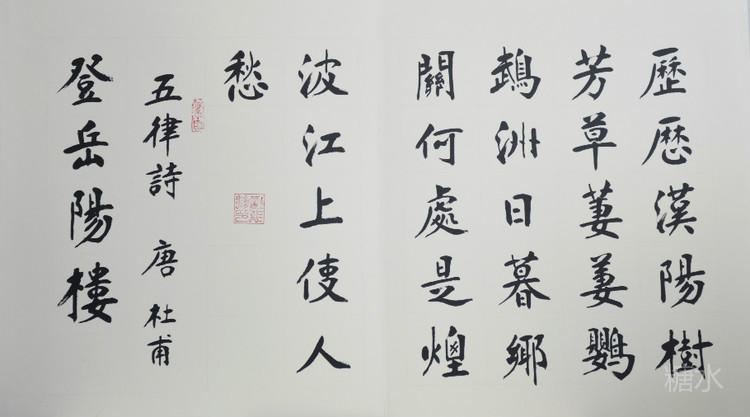 歷歷漢陽樹
芳草萋萋鸚
鵡洲日暮鄉
關何處是煙
波江上使人
愁
五律詩 唐 杜甫
登岳陽樓
糖水